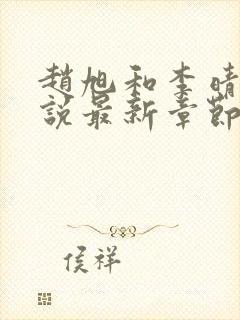 趙旭和李晴
說最新章節
侯祥